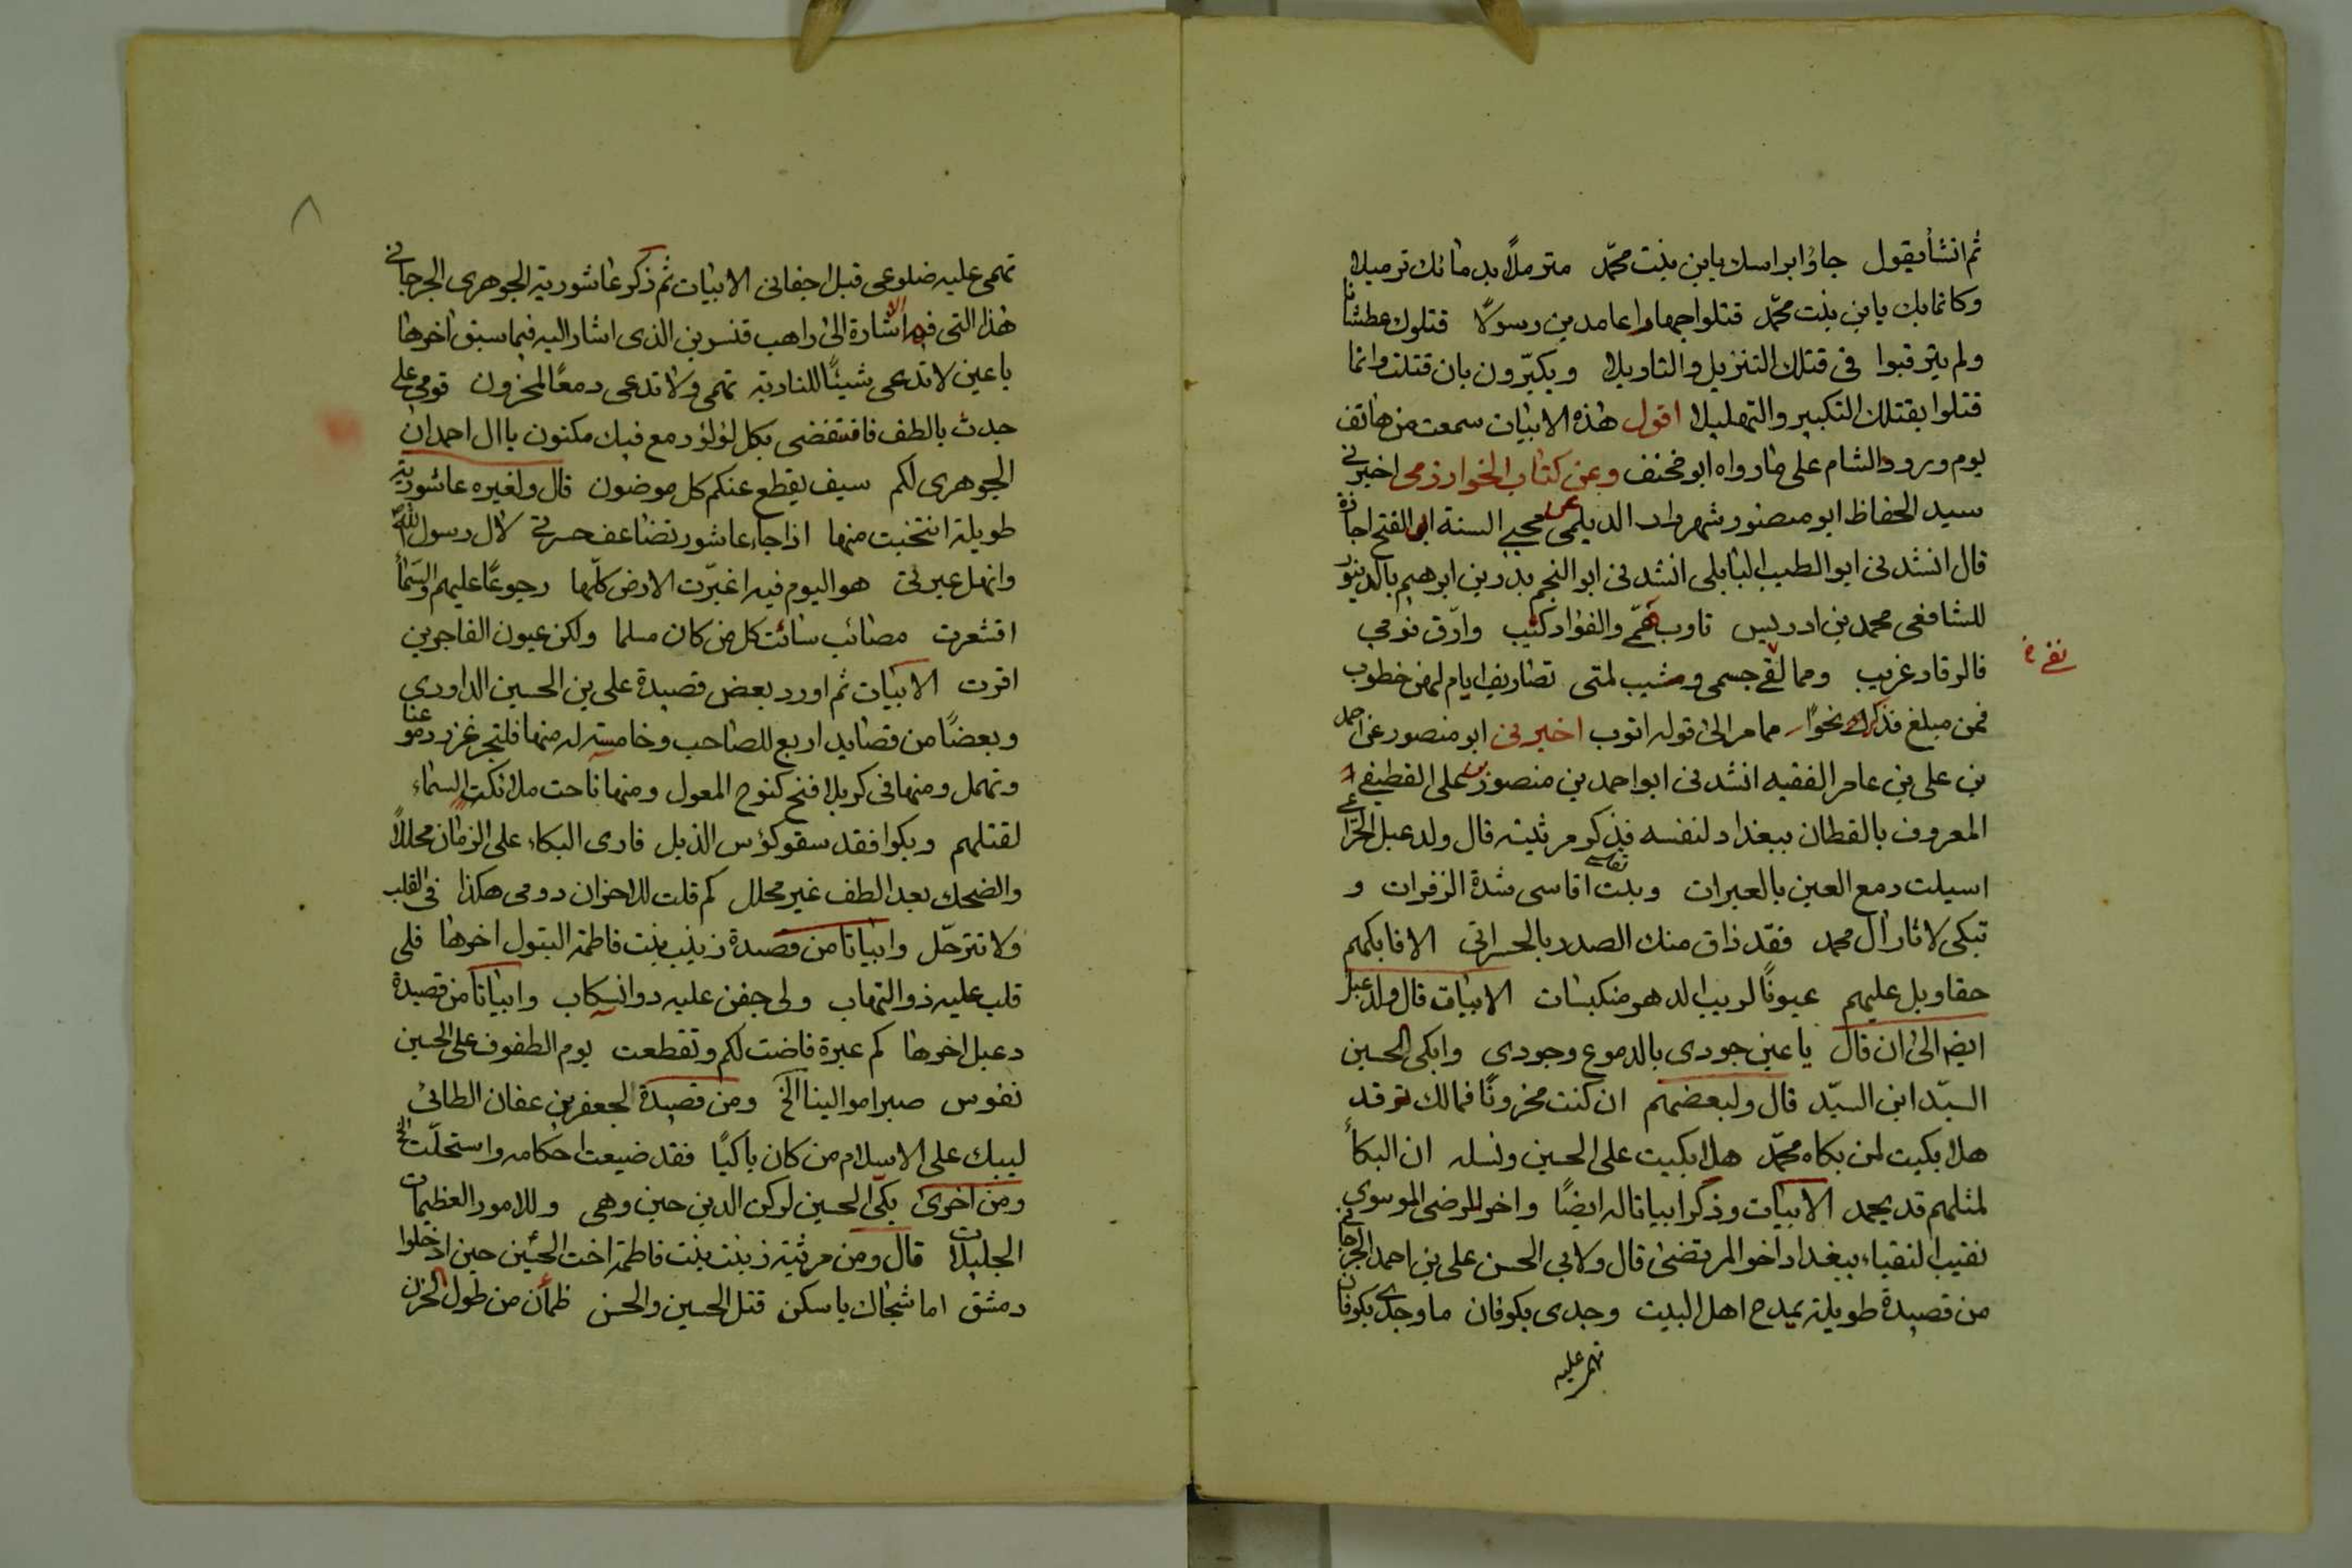 ثم انشأ يقول جاؤا براسك يا بن بنت محمّد مترملاً بدمائك ترميلا
وكانما بك يا بن بنت محمّد قتلوا جهارا عامدين رسولا قتلوك عطشانا
ولم يترقبوا فى قتلك التنزيل والتاويلا ويكبّرون بان قتلت وانما
قتلوا بقتلك التكبير والتهليلا اقول هذه الابيات سمعت من هاتف
يوم ورود الشام على ما رواه ابو مخنف وعن كتاب الخوارزمى اخبرنى
سيد الحفاظ ابو منصور شهردار الديلمى عن محيى السنة ابو الفتح اجازة
قال انشدنى ابو الطيب البابلى انشدنى ابو النجم بدر بن ابرهيم بالدينور
للشافعى محمد بن ادريس تاوب همّى والفؤاد كئيب وارّق نومى
فالرقاد غريب ومما نفى جسمى وشيب لمتى تصاريف ايام لهن خطوب
نفى خ
فمن مبلغ فذكر نحوا مما مر الى قوله اتوب اخبرنى ابو منصور عن احمد
بن على بن عامر الفقيه انشدنى ابو احمد بن منصور بن على القطيفى
المعروف بالقطان ببغداد لنفسه فذكر مرثيته قال ولدعبل الخزاعى
اسيلت دمع العين بالعبرات وبت تقاسى اقاسى شدة الزفرات و
تبكى لاثار آل محمد فقد ذاق منك الصدر بالحسراتى الا فابكهم
حقا وبل عليهم عيونًا لريب الدهر منكبسات الابيات قال ولدعبل
ايضا الى ان قال يا عين جودى بالدموع وجودى وابكى الحسين
السيّد ابن السيّد قال ولبعضهم ان كنت محزونًا فمالك ترقد
هلا بكيت لمن بكاه محمّد هلا بكيت على الحسين ونسله ان البكأ
لمثلهم قد يحمد الابيات وذكر ابياتا له ايضًا واخر للرضى الموسوى
نقيب النقباء ببغداد اخو المرتضى قال ولابى الحسن على بن احمد الجرجانى
من قصيدة طويلة يمدح اهل البيت وجدى بكوفان ما وجدى بكوفان
تهمى عليه
تهمى عليه ضلوعى قبل اجفانى الابيات ثم ذكر عاشورية الجوهرى الجرجانى
هذا التى فيه الاشارة الى راهب قنسرين الذى اشار اليه فيما سبق اخرها
يا عين لا تدعى شيئًا للنادبة تهمى ولا تدعى دمعًا لمحزون قومى على
جدث بالطف فانتفضى بكل لؤلؤ دمع فيك مكنون يا ال احمد ان
الجوهرى لكم سيف يقطع عنكم كل موضون قال ولغيره عاشورية
طويلة انتخبت منها اذا جاء عاشور تضاعف حسرتى لال رسول الله
وانهل عبرتى هو اليوم فيه اغبرّت الارض كلّها رجوعًا عليهم والسّمأ
اقشعرت مصائب سائت كل من كان مسلما ولكن عيون الفاجرين
اقرت الابيات ثم اورد بعض قصيدة على بن الحسين الداودى
وبعضًا من قصايد اربع للصاحب وخامسته له منها فلتجر غزر دموعنا
وتهمل ومنها فى كربلا فنح كنوح المعول ومنها ناحت ملائكة السماء
لقتلهم وبكوا فقد سقو كؤس الذبل فارى البكاء على الزمان محللاً
والضحك بعد الطف غير محلل كم قلت للاحزان دومى هكذا فى القلب
ولا تترحّل وابياتا من قصيدة زينب بنت فاطمة البتول اخرها فلى
قلب عليه ذو التهاب ولى جفن عليه دو انسكاب وابياتا من قصيدة
دعبل اخرها كم عبرة فاضت لكم وتقطعت يوم الطفوف على الحسين
نفوس صبرا موالينا الخ ومن قصيدة لجعفر بن عفان الطائى
ليبك على الاسلام من كان باكيًا فقد ضيعت احكامه واستحلّت الخ
ومن اخرى بكّى الحسين لركن الدين حين وهى وللامور العظيمات
الجليلات قال ومن مرثية زينب بنت فاطمة اخت الحسين حين ادخلوا
دمشق اما شجاك يا سكن قتل الحسين والحسن ظمأن من طول الحزن
٨